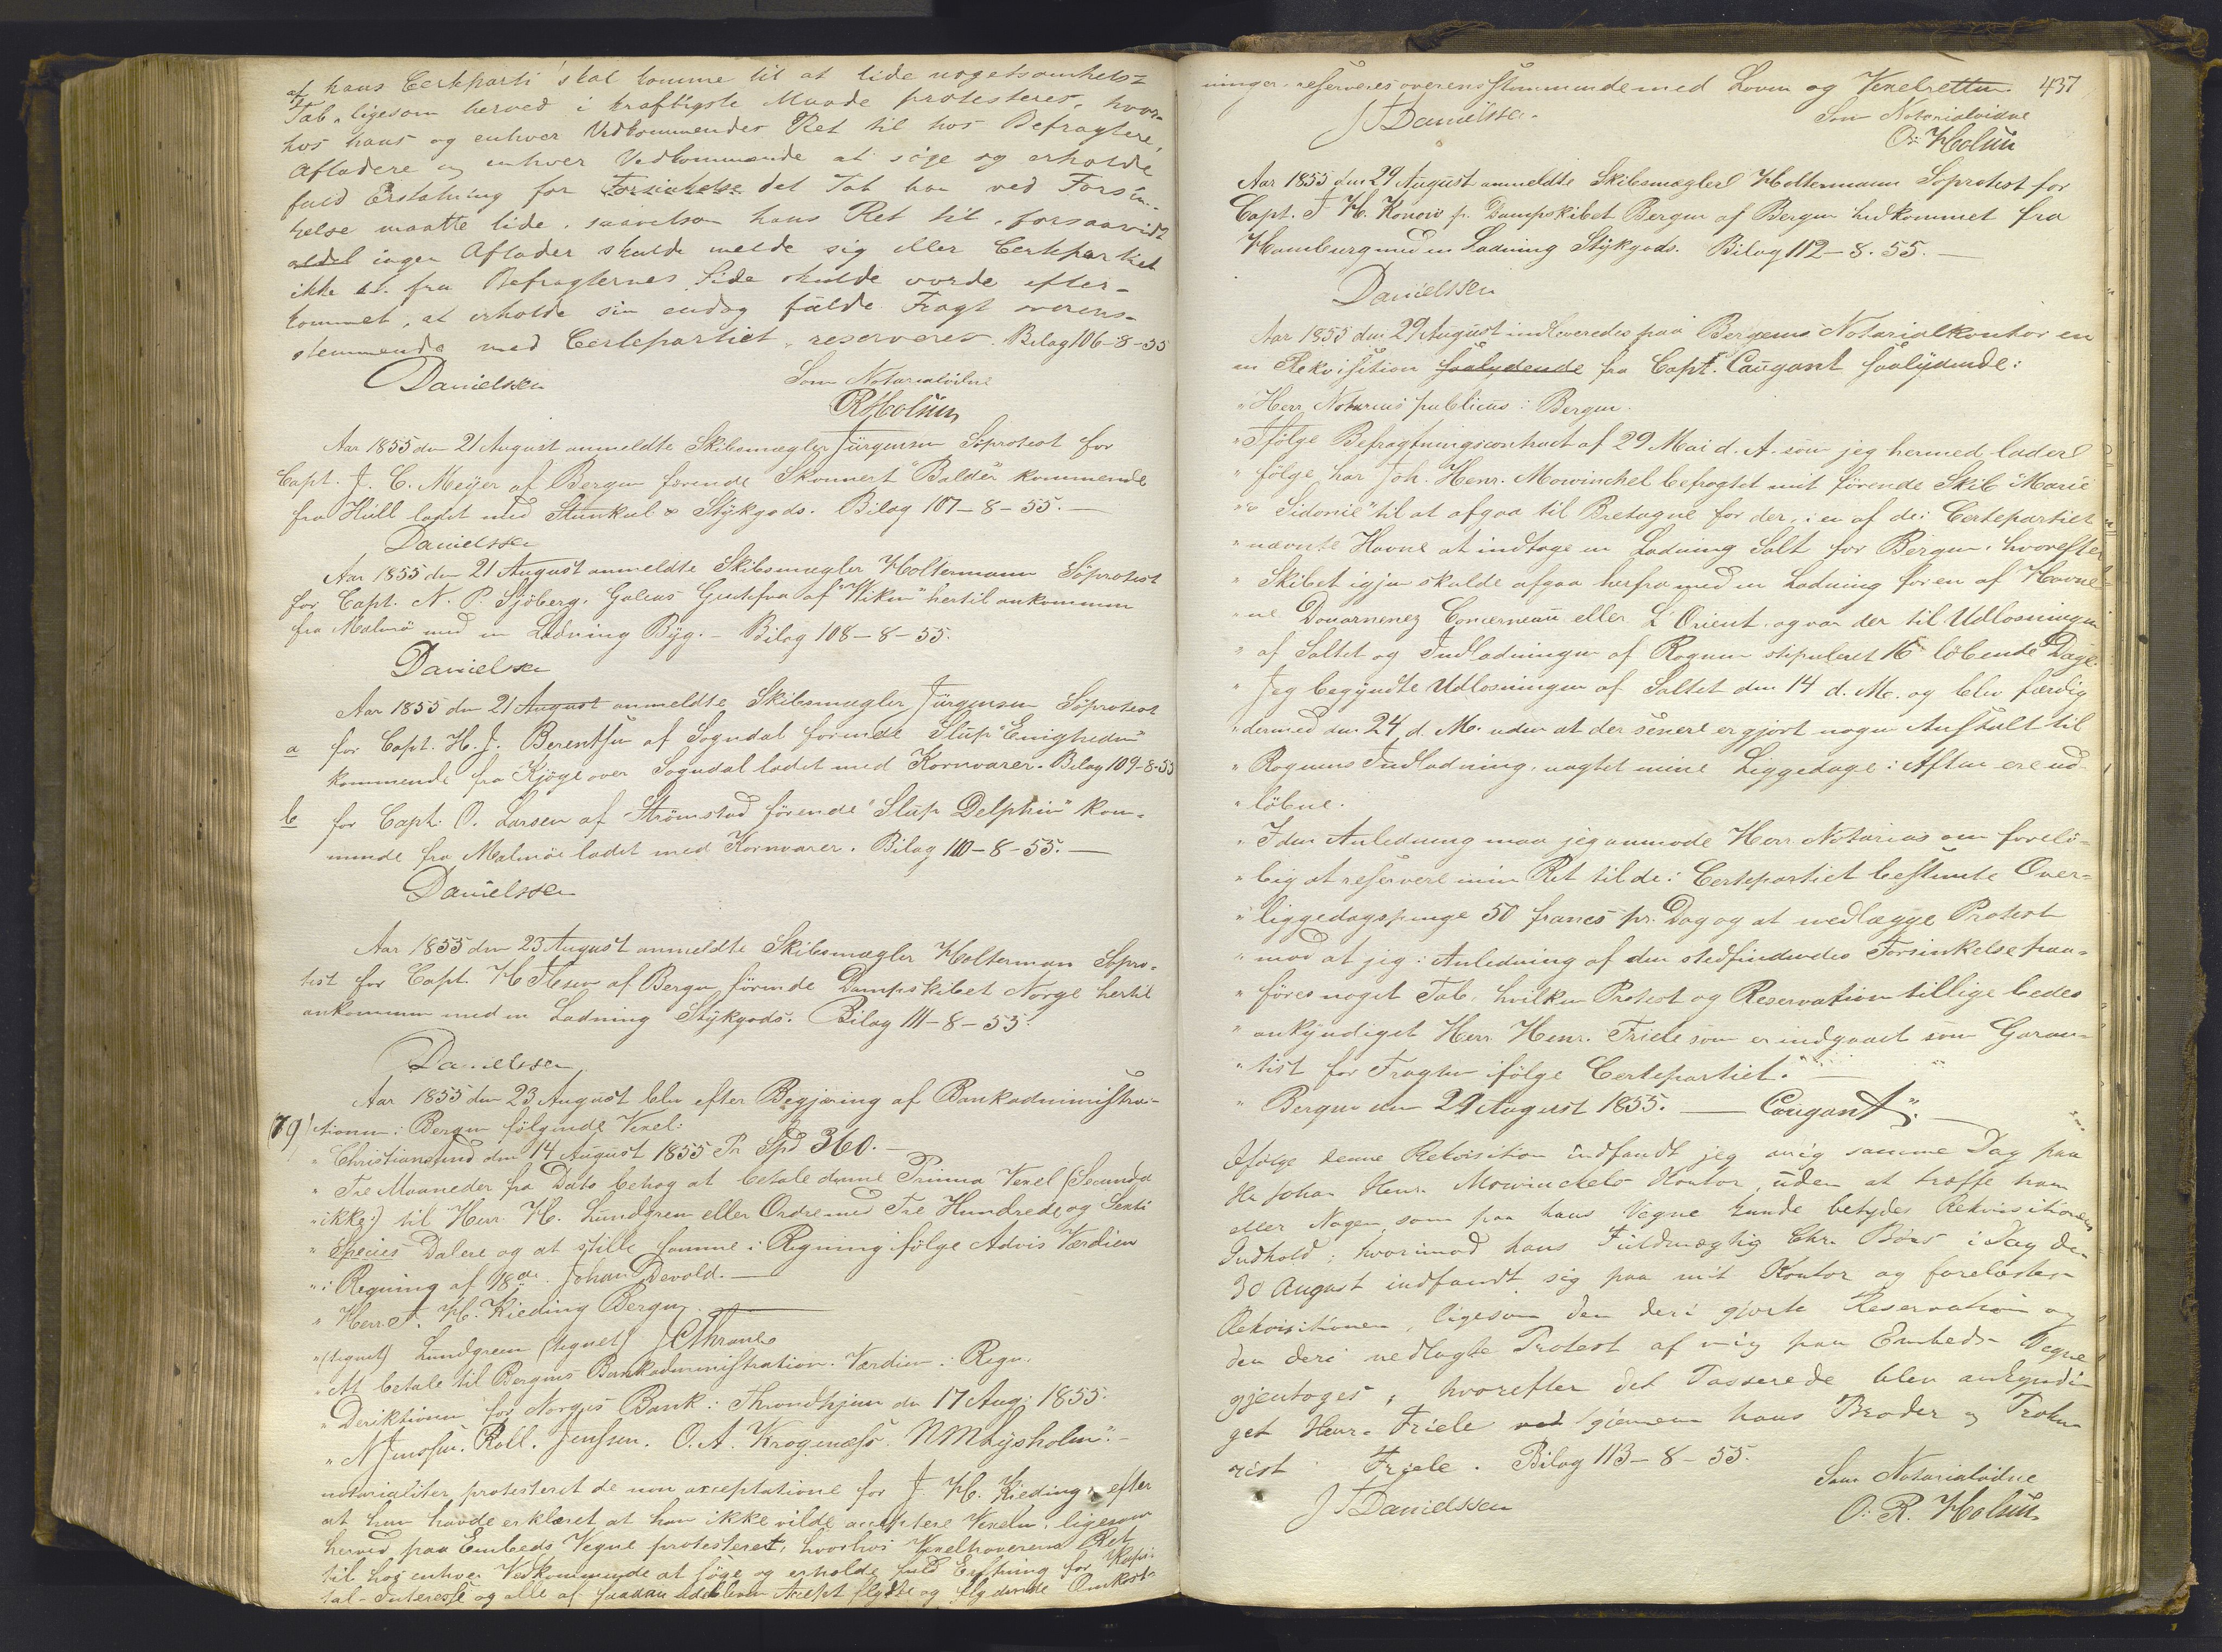 af hans Certeparti skal komme til at lide nogetsomhelst
Tab, ligesom herved i kraftigste Maade protesteres, hvor-
hos hans og enhver Vedkommendes Ret til hos Befragtere,
Afladere og enhver Vedkommende at söge og erholde
fuld Erstatning for Forsinkelse det Tab han ved Forsin-
kelse maatte lide, saavelsom hans Ret til, forsaavidt
ingen Aflader skulde melde sig eller Certepartiet
ikke fra Befragternes Side skulde vorde efter-
kommet, at erholde sin endog fulde Fragt overens-
stemmende med Certepartiet, reserveres. Bilag 106-8-55
Danielssen Som Notarialvidne
OR Holum
Aar 1855 den 21 August anmeldte Skibsmægler Jürgensen Söprotest for
Capt. J. C. Meyer af Bergen förende Skonnert "Balder" kommende
fra Hull ladet med Steenkul & Stykgods. Bilag 107-8-55.
Danielssen
Aar 1855 den 21 August anmeldte Skibsmægler Holtermann Söprotest
for Capt. N. P. Sjöberg, Galeas Gustafva af "Wiken" hertil ankommen
fra Malmö med en Ladning Byg. - Bilag 108-8-55.
Danielssen
Aar 1855 den 21 August anmeldte Skibsmægler Jürgensen Söprotest
a for Capt. H. J. Berentsen af Sogndal förende Slup "Enigheden"
kommende fra Kjöge over Sogndal ladet med Kornvarer. Bilag 109-8-55
b for Capt. O. Larsen af Strömstad förende "Slup Delphin" kom-
mende fra Malmöe ladet med Kornvarer. Bilag 110-8-55.
Danielssen
Aar 1855 den 23 August anmeldte Skibsmægler Holterman Söpro-
test for Capt. H. Flesew af Bergen förende Dampskibet Norge hertil
ankommen med en Ladning Stykgods. Bilag 111-8-55.
Danielssen
Aar 1855 den 23 August blev efter Begjæring af Bankadministra-
79) tionen i Bergen følgende Vexel:
" Christiansund den 14 August 1855 Pr Spd 360.
" Tre Maaneder fra Dato behag at betale denne Prima Vexel (Secunda
" ikke) til Herr H. Lundgren eller Ordre med Tre Hundrede og Sexti
" Species Dalere og at stille samme i Regning ifölge Advis Værdien
" i Regning af 18de. Johan Devold.
" Herr J. H. Kieding Bergen
" (tegnet) Lundgreen (tegnet) J C Thrane
" At betale til Bergens Bankadministration. Værdien i Regn.
" Deriktionen for Norges Bank i Throndhjem den 17 Aug: 1855.
" N Jenssen. Roll. Jenssen. O. A. Krogenæss. N M Lysholm".
notarialiter protesteret de non acceptatione for J. H. Kieding, efter
at han havde erklæret at han ikke vilde acceptere Vexelen, ligesom
herved paa Embeds Vegne protesteret, hvorhos Vexelhaverens Ret
til hos enhver Vedkommende at söge og erholde fuld Erstning for Kapi-
tal-Interesse og alle af saadan udebleven Accept flydte og flydende Omkost-
ninger, reserveres overensstemmende med Loven og Vexelretten. 437
J Danielssen. Som Notarialvidne
O. Holum
Aar 1855 den 29 August anmeldte Skibsmægler Holtermann Söprotest for
Capt. F. H. Konow fr. Dampskibet Bergen af Bergen hidkommet fra
Hamburg med en Ladning Stykgods. Bilag 112-8-55.
Danielssen
Aar 1855 den 29 August indleveredes paa Bergens Notarialkontor en
en Rekvisition saalydende fra Capt. Caugant saalydende:
" Herr Notarius publicus i Bergen.
" Ifölge Befragtningscontract af 29 Mai d. A. som jeg hermed lader
" fölge har Joh. Henr. Mowinckel befragtet mit förende Skib "Marie
" Sidonie" til at afgaa til Bretagne for der, i en af de i Certepartiet
" nævnte Havne at indtage en Ladning Salt for Bergen, hvorefter
" Skibet igjen skulde afgaa herfra med en Ladning for en af Havne-
" ne Douarnenez Concerneau eller L'Orient, og var der til Udlosningen
" af Saltet og Indladningen af Rognen stipuleret 16 löbende Dage.
" Jeg begyndte Udlosningen af Saltet den 14 d. M. og blev færdig
" dermed den 24 d. M. uden at der senere er gjort nogen Anstalt til
" Rognens Indladning, uagtet mine Liggedage i Aften ere ud-
" löbne.
" I den Anledning maa jeg anmode Herr Notarius om forelö-
" big at reservere min Ret til de i Certepartiet bestemte Over-
" liggedagspenge 50 francs pr. Dag og at nedlægge Protest
" mod at jeg i Anledning af den stedfindendes Forsinkelse paa-
" föres noget Tab, hvilken Protest og Reservation tillige bedes
" ankyndiget Herr Henr. Friele som er indgaaet som Garan-
" tist for Fragten ifölge Certepartiet.
" Bergen den 29 August 1855. Caugant".
Ifølge denne Rekvisition indfandt jeg mig samme Dag paa
Hr Johan Henr. Mowinckels Kontor, uden at træffe ham
eller Nogen, som paa hans Vegne kunde betydes Rekvisitionens
Indhold; hvorimod hans Fuldmægtig Chr. Börs i Dag den
30 August indfandt sig paa mit Kontor og forelæstes
Rekvisitionen, ligesom den deri gjorte Reservation og
den deri nedlagte Protest af mig paa Embeds Vegne
gjentoges, hvorefter det Passerede blev ankyndi-
get Henr. Friele ved gjennem hans Broder og Proku-
rist Friele. Bilag 113-8-55.
J Danielssen Som Notarialvidne
O. R. Holum